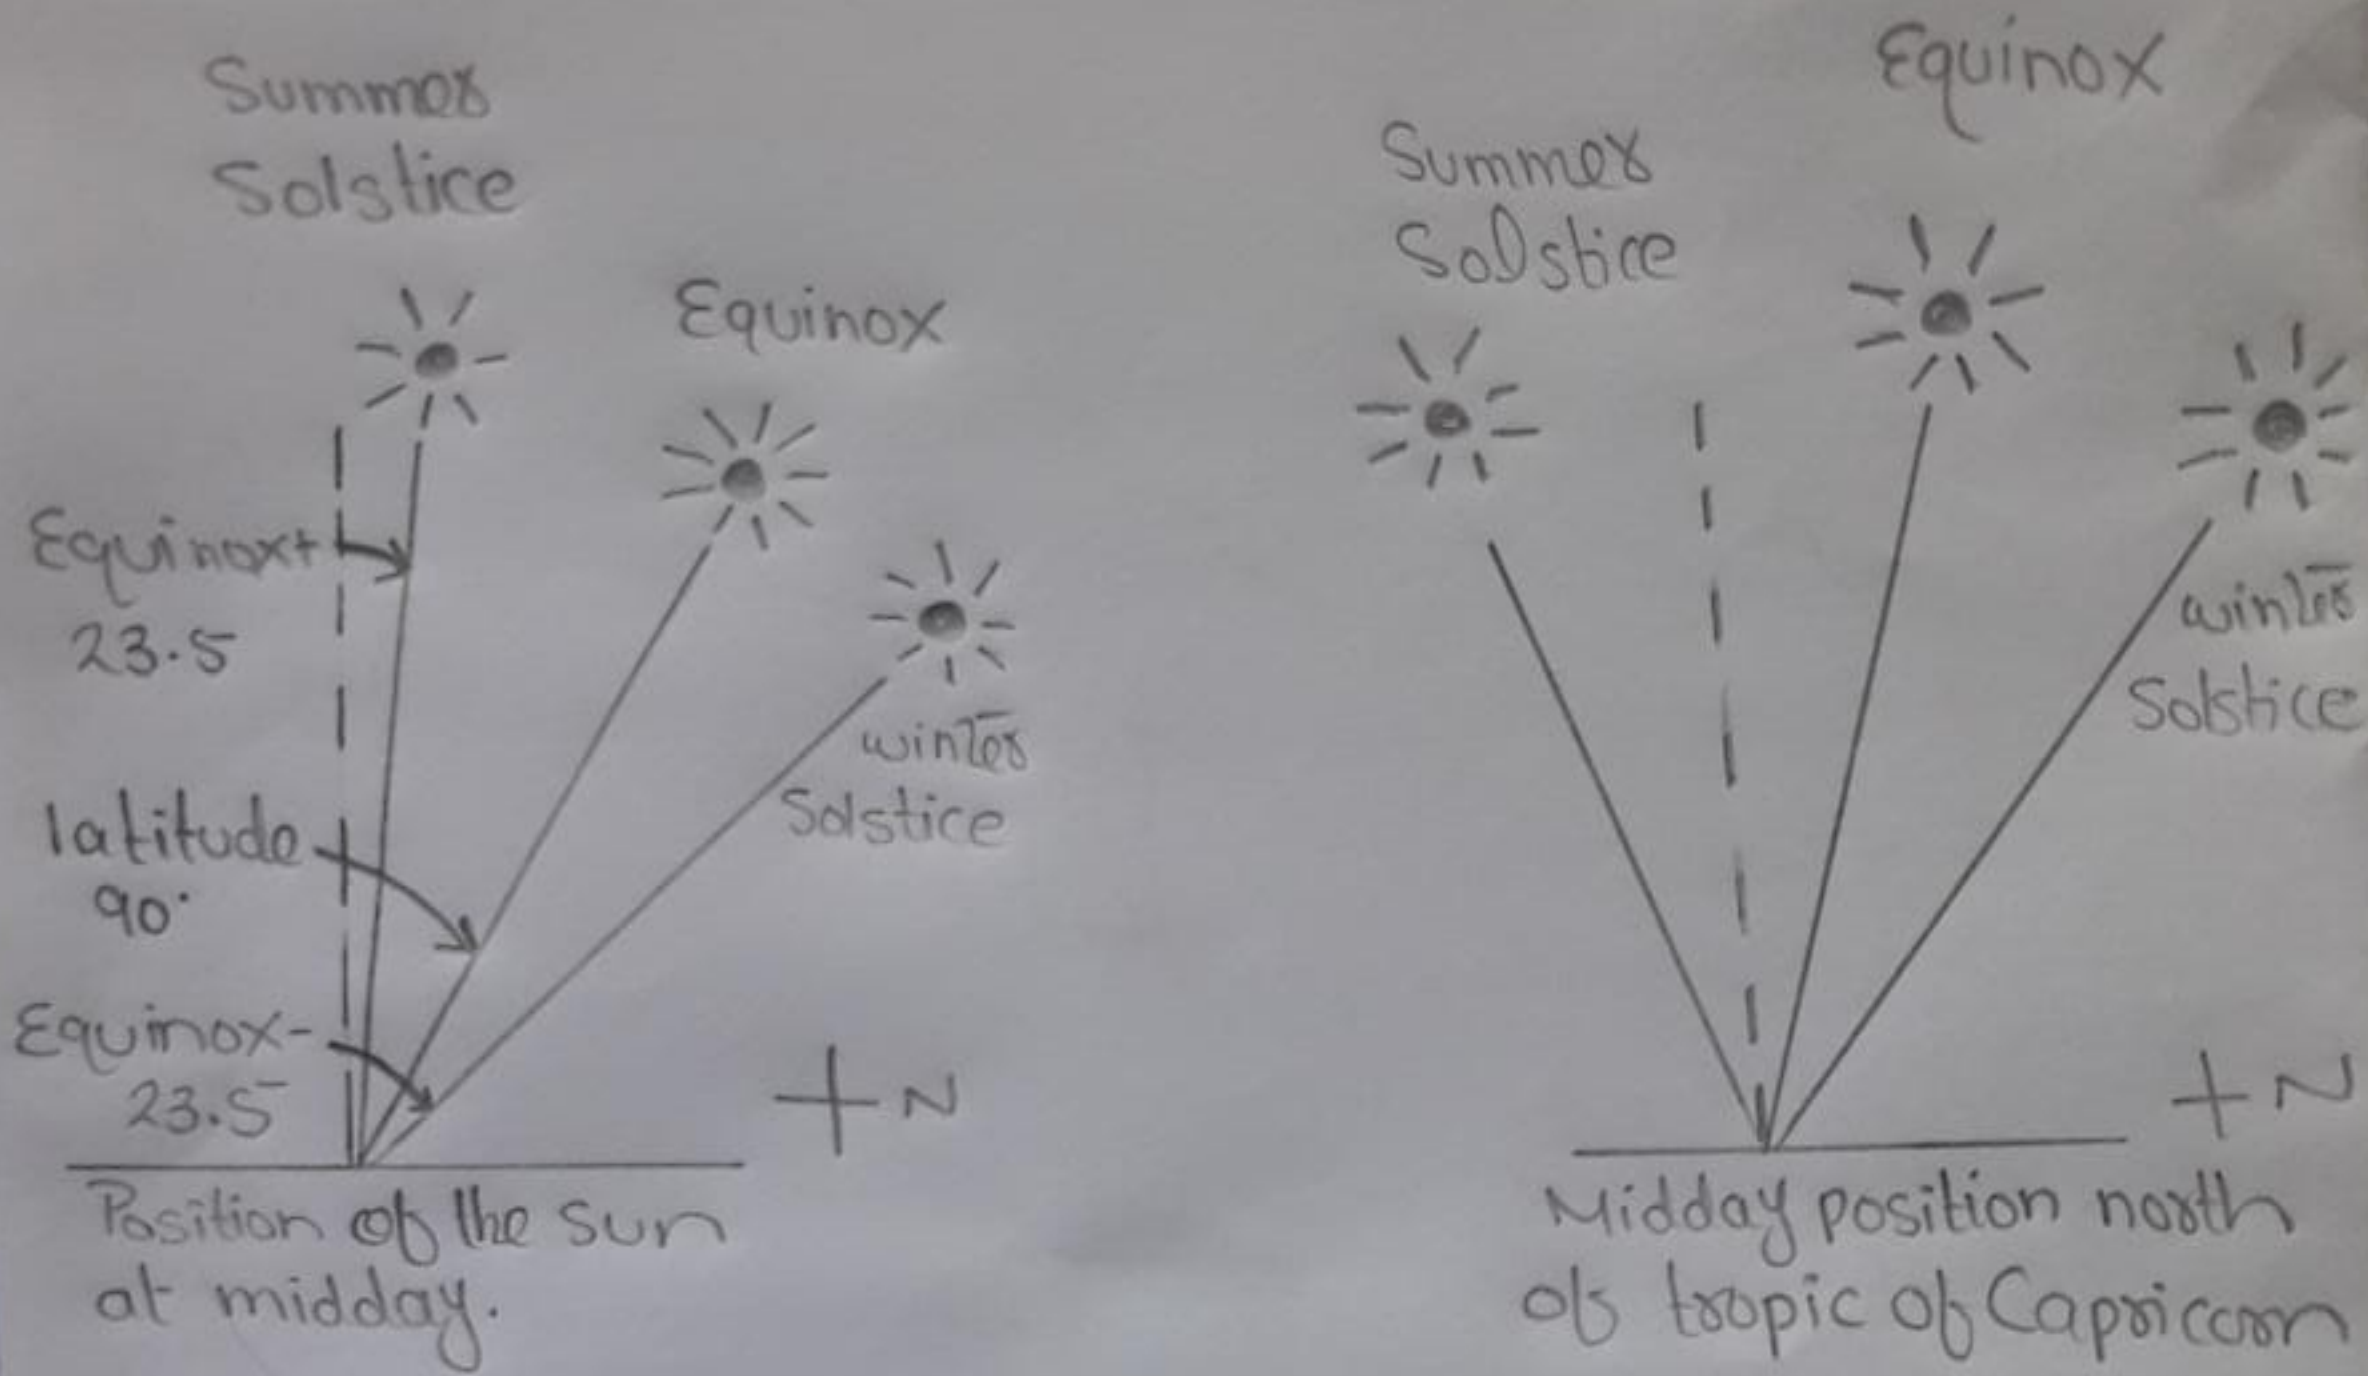 Summer
Solstice
Equinox
Equinox+
23.5
latitude
90°
Equinox-
23.5
winter
Solstice
+N
Position of the sun
at midday.
Equinox
Summer
Solstice
winter
Solstice
+N
Midday position north
of tropic of Capricorn